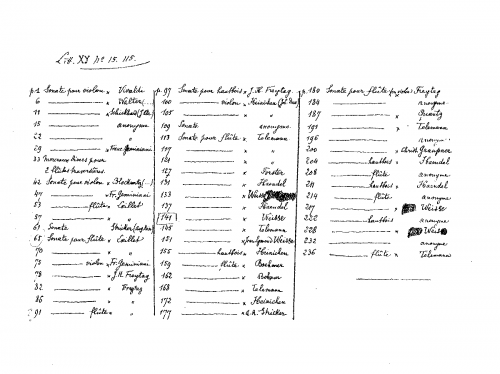 Litt. XY no 15. 115.
p. 1 Sonate pour violon x Vivaldi
6 ——— x Walter (...)
11 ——— x Schickhard (J. Ch.)
15 ——— anonyme
22 ——— x
29 ——— x Franc. Geminiani
33 Morceaux divers pour
2 flûtes traversières.
42 Sonate pour violon x
44 ——— x Fr. Geminiani
53 ——— flûte x Loillet
57 ——— x "
61 Sonate Stricker
65 Sonate pour flûte x Loillet
70 ——— x "
75 ——— violon x Fr. Geminiani
78 ——— x J. H. Freytag
82 ——— x Freytag
86 ——— x "
p. 91 ——— flûte x "
p. 97 Sonate pour hautbois x J. H. Freytag
100 ——— violon x Heinichen
105 ——— x "
109 Sonate anonyme
113 Sonate pour flûte x Telemann
117 ——— x "
121 ——— x "
127 ——— x Förster
131 ——— x Haendel
133 ——— x Weisse
137 ——— x Haendel
[141] ——— x Weisse
145 ——— x Telemann
151 ——— x Weisse
155 ——— hautbois x Heinichen
159 ——— flûte x
162 ——— x
168 ——— x Telemann
172 ——— x Heinichen
177 ——— x A. R. Stricker
p. 180 Sonate pour flûte x Freytag
184 ——— anonyme
187 ——— x Quantz
191 ——— x Telemann
196 ——— anonyme
200 ——— x Christ. Graupner
204 ——— hautbois x Haendel
208 ——— flûte anonyme
211 ——— hautbois x Haendel
214 ——— flûte anonyme
217 ——— x Weisse
222 ——— hautbois anonyme
228 ——— x Weisse
232 ——— anonyme
236 ——— flûte x Telemann